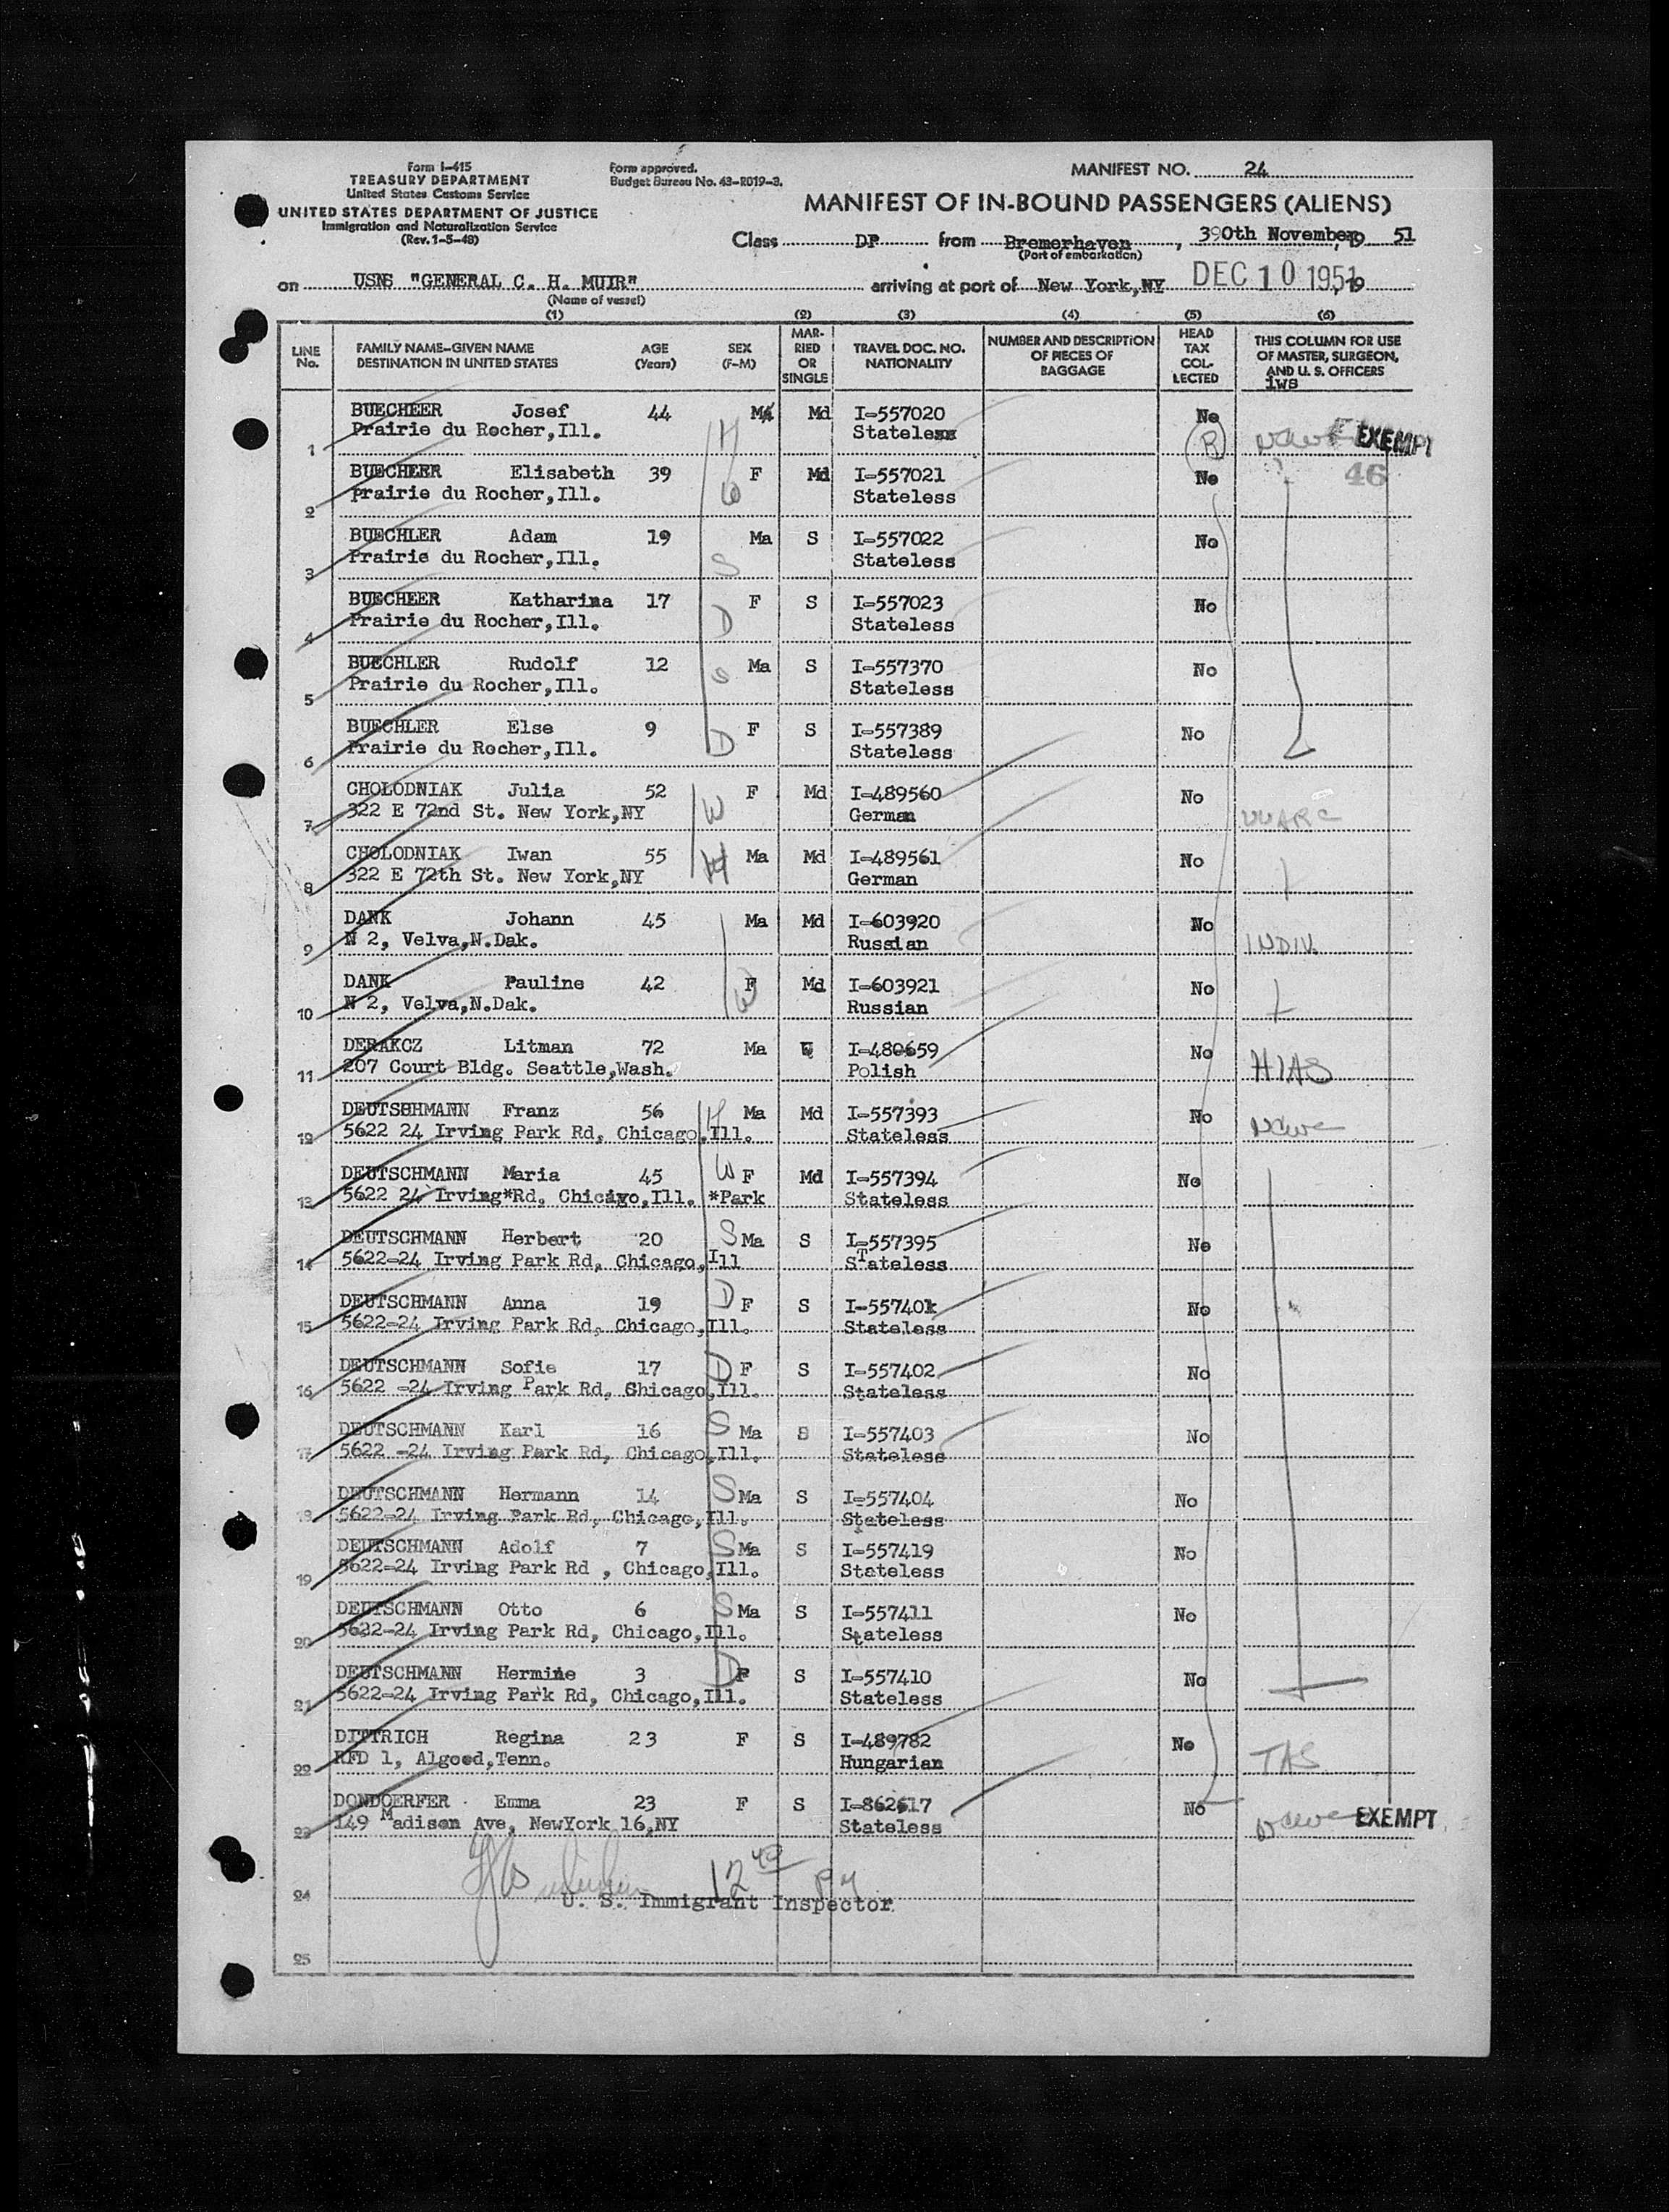 Form I-415
TREASURY DEPARTMENT
United States Customs Service
UNITED STATES DEPARTMENT OF JUSTICE
Immigration and Naturalization Service
(Rev. 1-5-48)
Form approved.
Budget Bureau No. 43-R019-3.
MANIFEST NO. 24
MANIFEST OF IN-BOUND PASSENGERS (ALIENS)
Class DP from Bremerhaven, 390th November, 19 51
(Port of embarkation)
on USNS "GENERAL C. H. MUIR" arriving at port of New York,NY DEC 10 1951, 19
(Name of vessel)
(1) (2) (3) (4) (5) (6)
LINE No.
FAMILY NAME-GIVEN NAME
DESTINATION IN UNITED STATES
AGE
(Years)
SEX
(F-M)
MAR-
RIED
OR
SINGLE
TRAVEL DOC. NO.
NATIONALITY
NUMBER AND DESCRIPTION
OF PIECES OF
BAGGAGE
HEAD
TAX
COL-
LECTED
THIS COLUMN FOR USE
OF MASTER, SURGEON,
AND U. S. OFFICERS
iws
BUECHEER Josef 44 H Ma Md I-557020 No EXEMPT
1 Prairie du Rocher,Ill. Stateless R
BUECHEER Elisabeth 39 W F Md I-557021 No 46
2 Prairie du Rocher,Ill. Stateless
BUECHLER Adam 19 Ma S I-557022 No
3 Prairie du Rocher,Ill. S Stateless
BUECHEER Katharina 17 F S I-557023 No
4 Prairie du Rocher,Ill. D Stateless
BUECHLER Rudolf 12 S Ma S I-557370 No
5 Prairie du Rocher,Ill. Stateless
BUECHLER Else 9 D F S I-557389 No
6 Prairie du Rocher,Ill. Stateless
CHOLODNIAK Julia 52 W F Md I-489560 No
7 322 E 72nd St. New York,NY German
CHOLODNIAK Iwan 55 H Ma Md I-489561 No
8 322 E 72th St. New York,NY German
DANK Johann 45 Ma Md I-603920 No
9 N 2, Velva,N.Dak. Russian INDIV.
DANK Pauline 42 W F Md I-603921 No
10 N 2, Velva,N.Dak. Russian
DERAKCZ Litman 72 Ma W I-480659 No
11 207 Court Bldg. Seattle,Wash. Polish HIAS
DEUTSHHMANN Franz 56 H Ma Md I-557393 No
12 5622 24 Irving Park Rd, Chicago,Ill. Stateless
DEUTSCHMANN Maria 45 W F Md I-557394 No
13 5622 24 Irving*Rd. Chicago,Ill. *Park Stateless
DEUTSCHMANN Herbert 20 S Ma S I-557395 No
14 5622-24 Irving Park Rd, Chicago,Ill STateless
DEUTSCHMANN Anna 19 D F S I-557401 No
15 5622-24 Irving Park Rd, Chicago,Ill. Stateless
DEUTSCHMANN Sofie 17 D F S I-557402 No
16 5622 -24 Irving Park Rd, Shicago,Ill. Stateless
DEUTSCHMANN Karl 16 S Ma S I-557403 No
17 5622 -24 Irving Park Rd, Chicago,Ill. Stateless
DEUTSCHMANN Hermann 14 S Ma S I-557404 No
18 5622-24 Irving Park Rd, Chicago,Ill. Stateless
DEUTSCHMANN Adolf 7 S Ma S I-557419 No
19 5622-24 Irving Park Rd , Chicago,Ill. Stateless
DEUTSCHMANN Otto 6 S Ma S I-557411 No
20 5622-24 Irving Park Rd, Chicago,Ill. Stateless
DEUTSCHMANN Hermine 3 D F S I-557410 No
21 5622-24 Irving Park Rd, Chicago,Ill. Stateless
DITTRICH Regina 23 F S I-489782 No
22 RFD 1, Algood,Tenn. Hungarian TAS
DONDOERFER Emma 23 F S I-862617 No EXEMPT
23 149 Madison Ave, NewYork 16,NY Stateless
24 12 40 PM
U. S. Immigrant Inspector
25